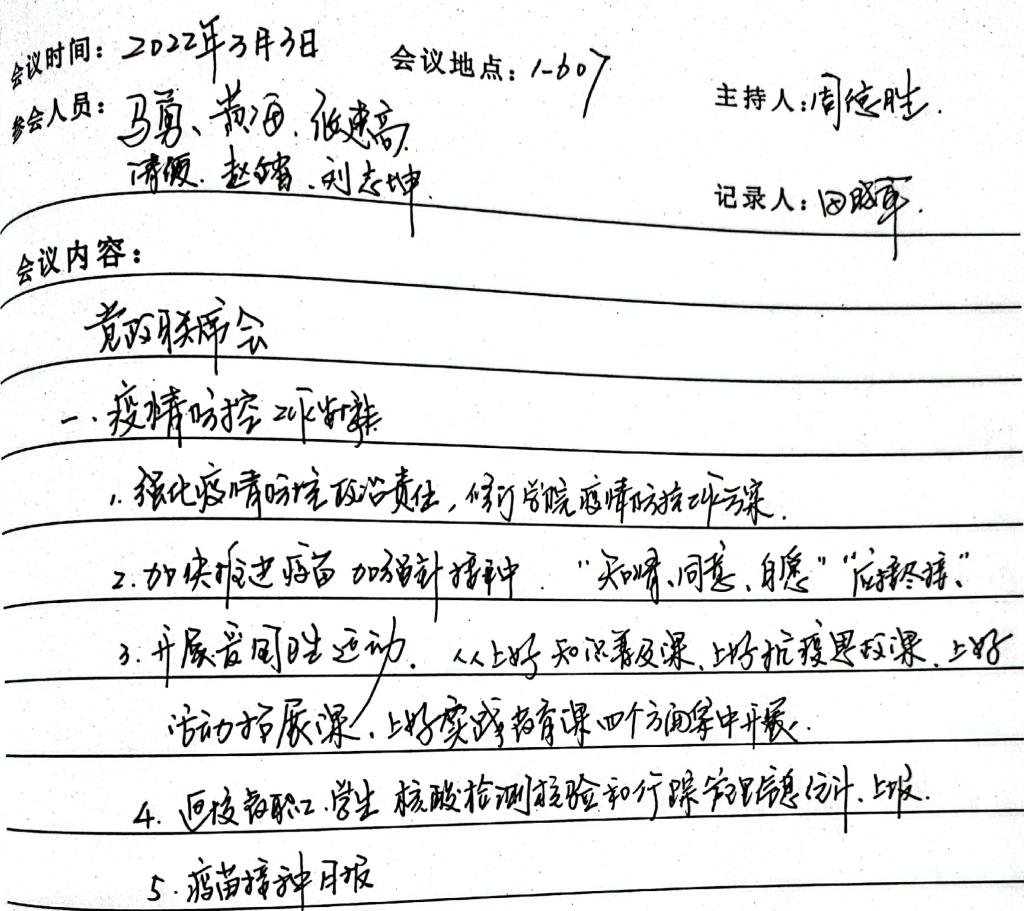 会议时间：2022年3月3日 会议地点：1-607 主持人：周德胜.
参会人员：马勇、黄海、张建高
赵 、刘志坤. 记录人：田晓军.
会议内容：
党政联席会
一.疫情防控工作安排
1.强化疫情防控政治责任,修订学院疫情防控工作方案.
2.加快推进疫苗加强针接种."知情、同意、自愿""应接尽接."
3.开展爱国卫生运动.从上好知识普及课、上好抗疫思政课、上好
活动拓展课、上好实践教育课四个方面集中开展.
4.返校教职工.学生核酸检测核验和行踪管理信息统计、上报.
5.疫苗接种月报